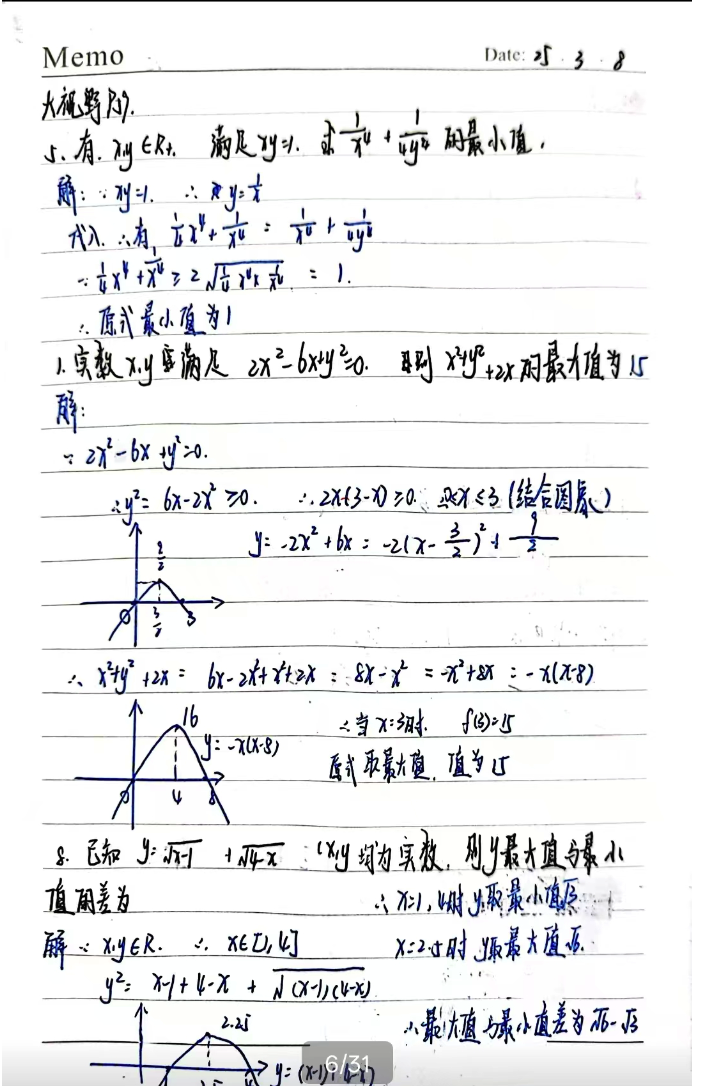 Memo
Date: 25. 3. 8
大视野 P57.
5、有. x,y∈R+. 满足xy=1. 求 1/x⁴ + 1/4y⁴ 的最小值.
解: ∵xy=1. ∴ y=1/x
代入. ∴有 1/4x⁴+1/x⁴ = 1/x⁴ + 1/4y⁴
∵ 1/4x⁴+1/x⁴ ≥ 2√(1/4x⁴×1/x⁴) = 1.
∴原式最小值为1
1.实数x.y 满足 2x²-6x+y²=0. 则 x²+y²+2x的最大值为15
解:
∵ 2x²-6x+y²=0.
∴y²= 6x-2x² ≥0. ∴2x(3-x)≥0. 0≤x≤3(结合图象)
y= -2x²+6x = -2(x-3/2)²+9/2
9/2
0 3/2 3
∴ x²+y²+2x = 6x-2x²+x²+2x = 8x-x² = -x²+8x = -x(x-8)
16
y=-x(x-8)
0 4 8
∴当x=3时. f(3)=15
原式取最大值. 值为15
8. 已知 y=√x-1 +√4-x (x,y均为实数. 则y最大值与最小
值的差为
∴ x=1,4时y取最小值√3
解 ∵ x.y∈R. ∴ x∈[1,4]
x=2.5时 y取最大值√6.
y²= x-1+4-x + √(x-1)(4-x)
∴最大值与最小值差为√6-√3
2.25
y=(x-1)(4-x)
6/31